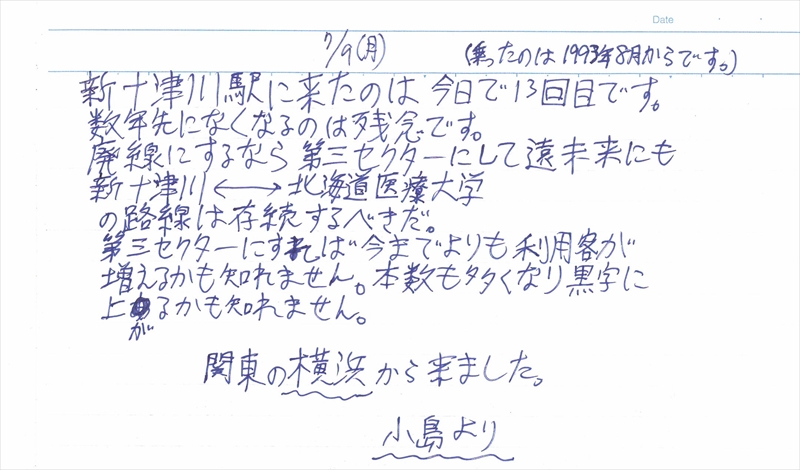 Date
7/9(月) (乗ったのは1993年8月からです。)
新十津川駅に来たのは今日で13回目です。
数年先になくなるのは残念です。
廃線にするなら第三セクターにして遠未来にも
新十津川←→北海道医療大学
の路線は存続するべきだ。
第三セクターにすれば今までよりも利用客が
増えるかも知れません。本数も多くなり黒字に
上がるかも知れません。
関東の横浜から来ました。
小島より